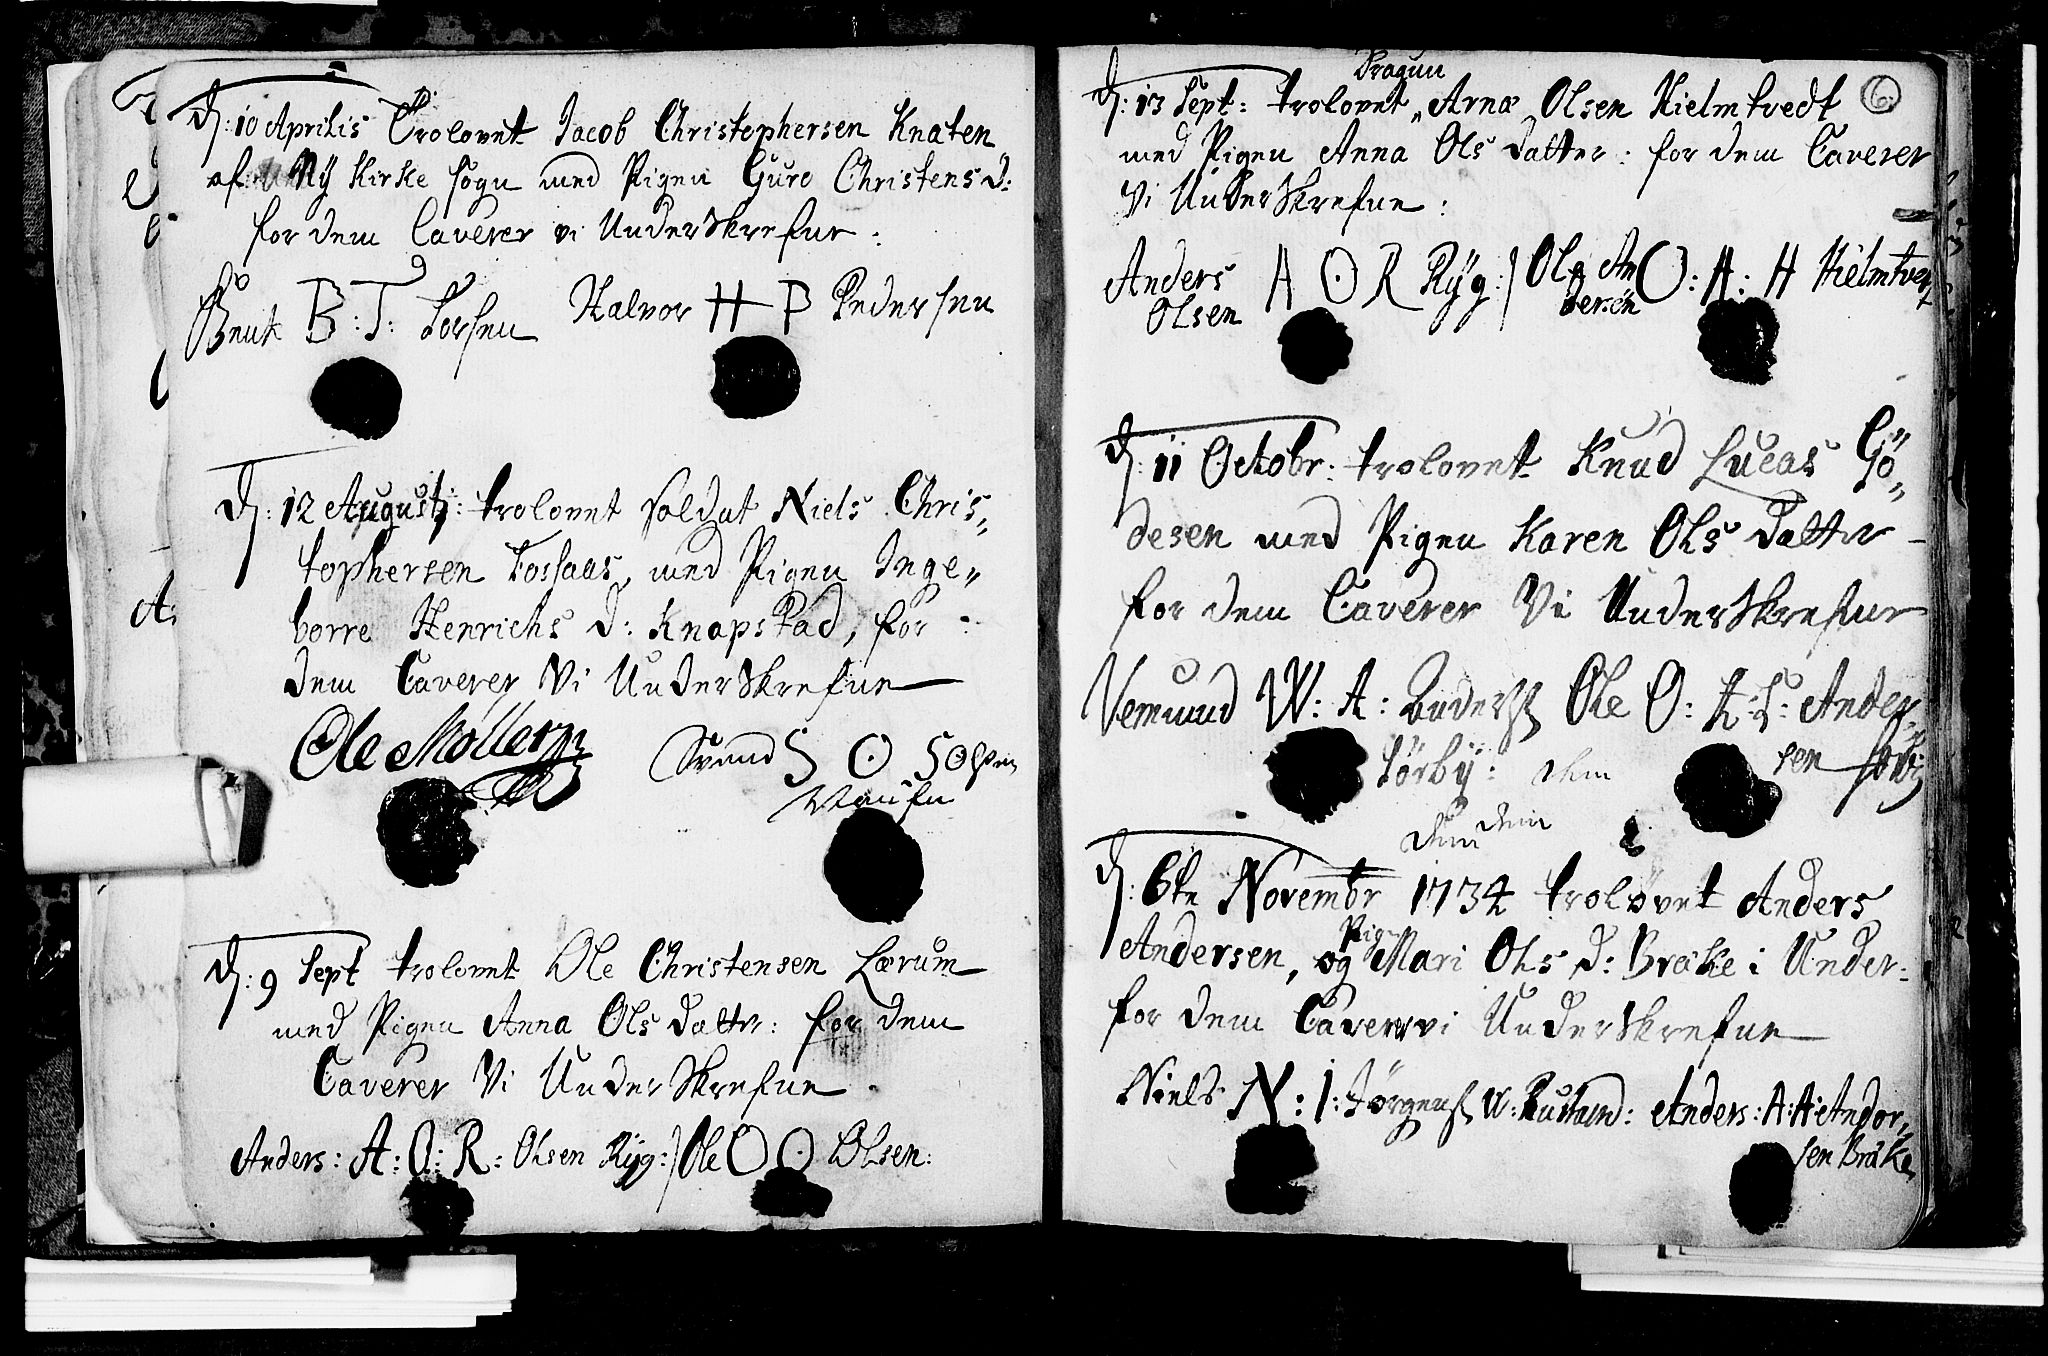 d: 10 Aprilis Trolovet Jacob Christophersen Knaten
af Ny Kirke sogn med Pigen Guro Christens D:
for dem Caverer vi Underskrefne:
Bent B: T: Torsen Halvor H P Pedersen
d: 12 Augusti: trolovet soldat Niels Chris„
tophersen Fossaas, med Pigen Inge„
borre Henrichs D: Knapstad, for
dem Caverer Vi Underskrefne
Ole Moller
Svend S O S Olsen
d: 9 Sept trolovet Ole Christensen Lærum
med Pigen Anna Ols Datter: for dem
Caverer Vi Underskrefne
Anders: A: O: R: Olsen Ryg: / Ole O O Olsen:
6
Dragun
d: 13 Sept: trolovet „ Arne Olsen Hielmtvedt
med Pigen Anna Ols Datter: for dem Caverer
Vi Underskrefne:
Anders A O R Ryg: / Ole An O: A: H Hielmtvet
Olsen dersen
d: 11 Octobr: trolovet Knud Lucas Gö„
desen med Pigen Karen Ols Datter
for dem Caverer Vi Underskrefne
Vemund W: A: Ole O: A: S: Ander„
Sörby: dem sen Sörby
dem dem
d: 6te Novembr 1734 trolovet Anders
Pig
Andersen, og Mari Ols D: Brække i Under:
for dem Caverer vi Underskrefne
Niels N: I: Jörgens Anders: A: A: Ander„
sen Brække